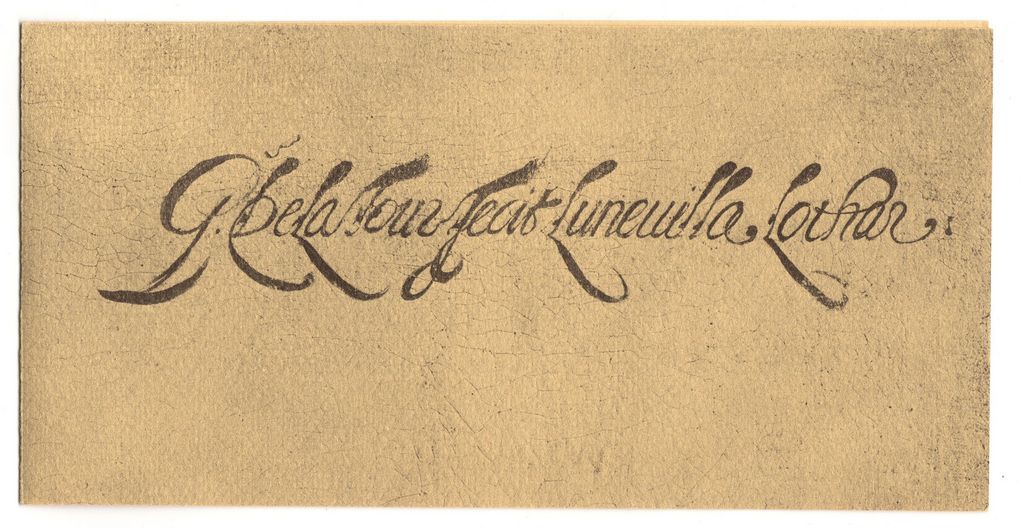 G. De La Tour fecit Luneuilla Lothar: